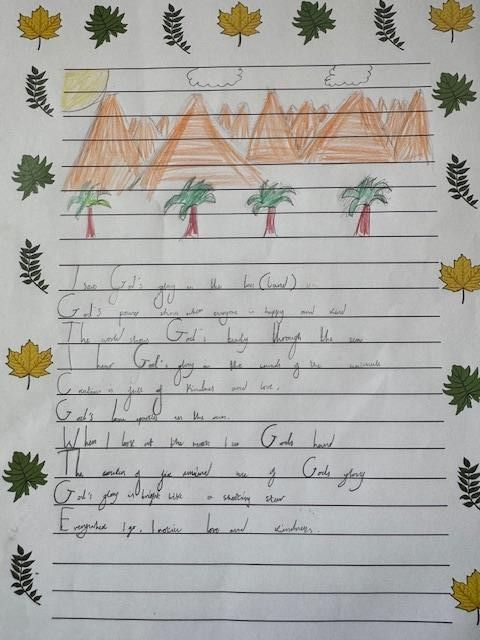 I see God's glory in the (land)
God's power shows when everyone is happy and kind
The world shows God's beauty through the sea
I hear God's glory in the sounds of the animals
Creation is full of kindness and love.
God's love sparkles in the sun.
When I look at the moon I see Gods hand
The smiles of joy remind me of Gods glory
God's glory is bright like a shooting star
Everywhere I go, I notice love and kindness.